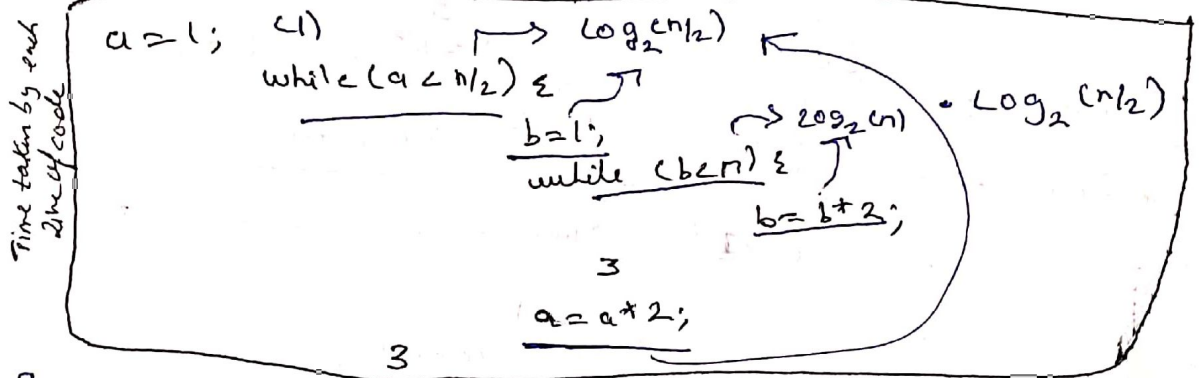 Time taken by each
Line of code
a = 1; (1)
→ Log₂(n/2)
while (a < n/2) {
b = 1;
→ Log₂(n) • Log₂(n/2)
while (b < n) {
b = b * 2;
}
a = a * 2;
}